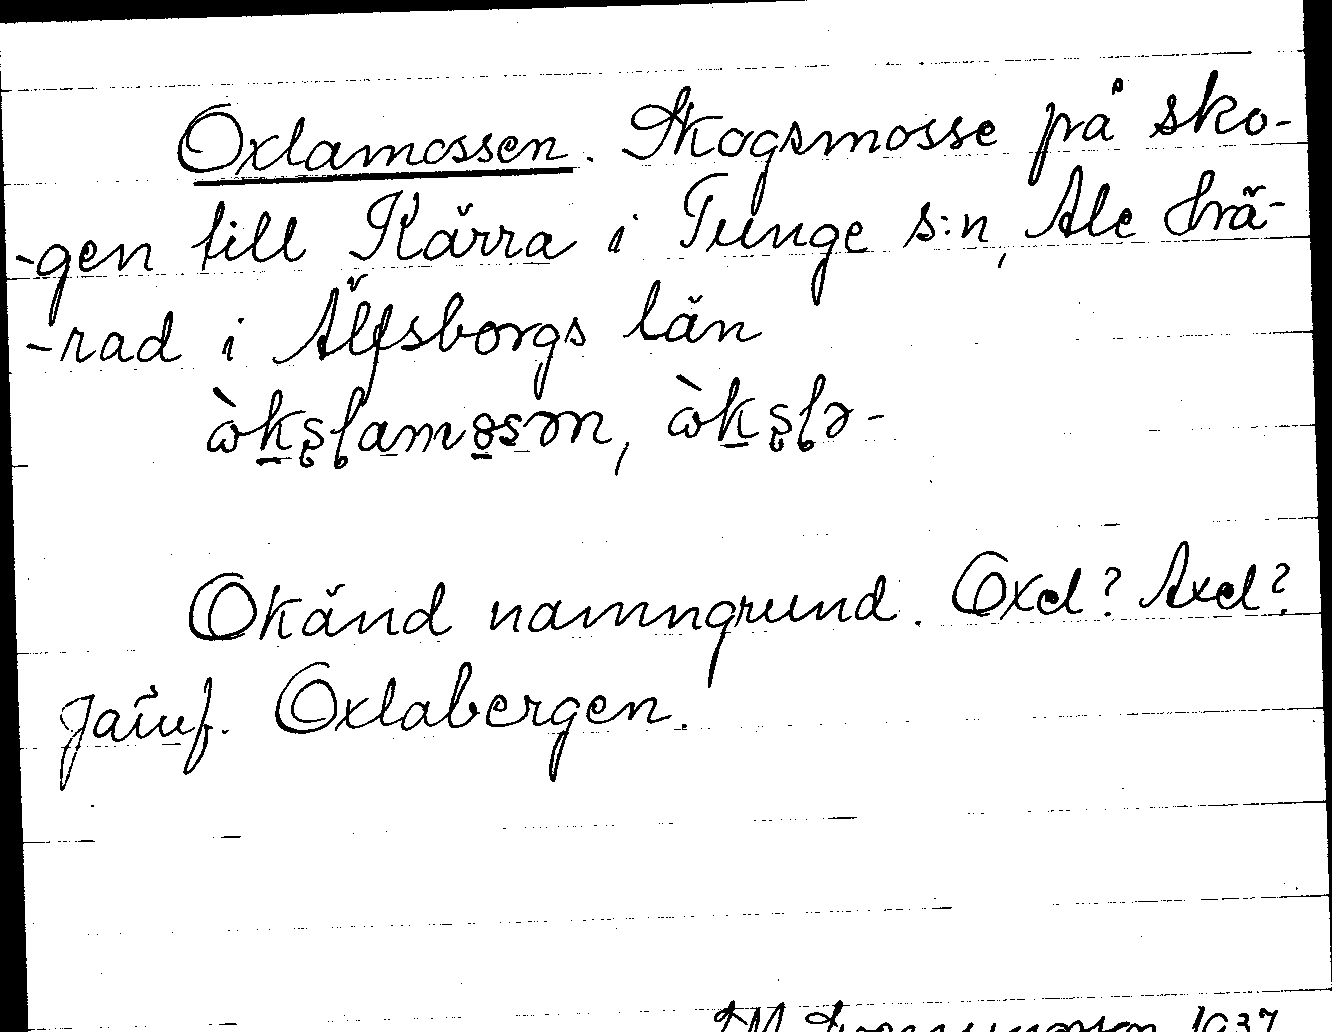 Oxlamossen. Skogsmosse på sko-
-gen till Kärra i Tunge s:n, Ale hä-
-rad i Älfsborgs län
ὼkşl̥amo̤sən, ὼkşl̥ə-
Okänd namngrund. Oxel? Axel?
Jämf. Oxlabergen.
1937